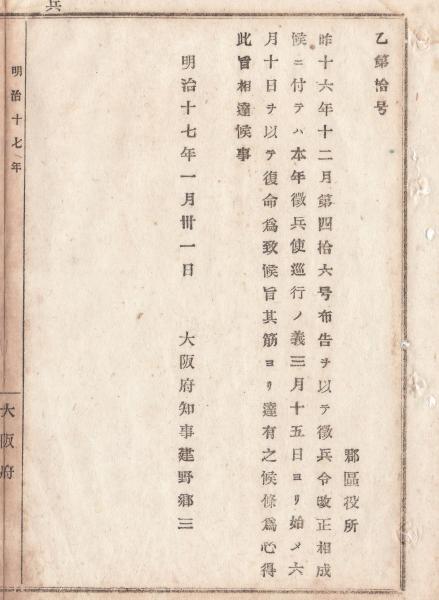 兵
乙第拾号
郡區役所
昨十六年十二月第四拾六号布告ヲ以テ徴兵令改正相成
候ニ付テハ本年徴兵使巡行ノ義三月十五日ヨリ始メ六
月十日ヲ以テ復命為致候旨其筋ヨリ達有之候條為心得
此旨相達候事
明治十七年一月卅一日 大阪府知事建野郷三
明治十七年
大阪府